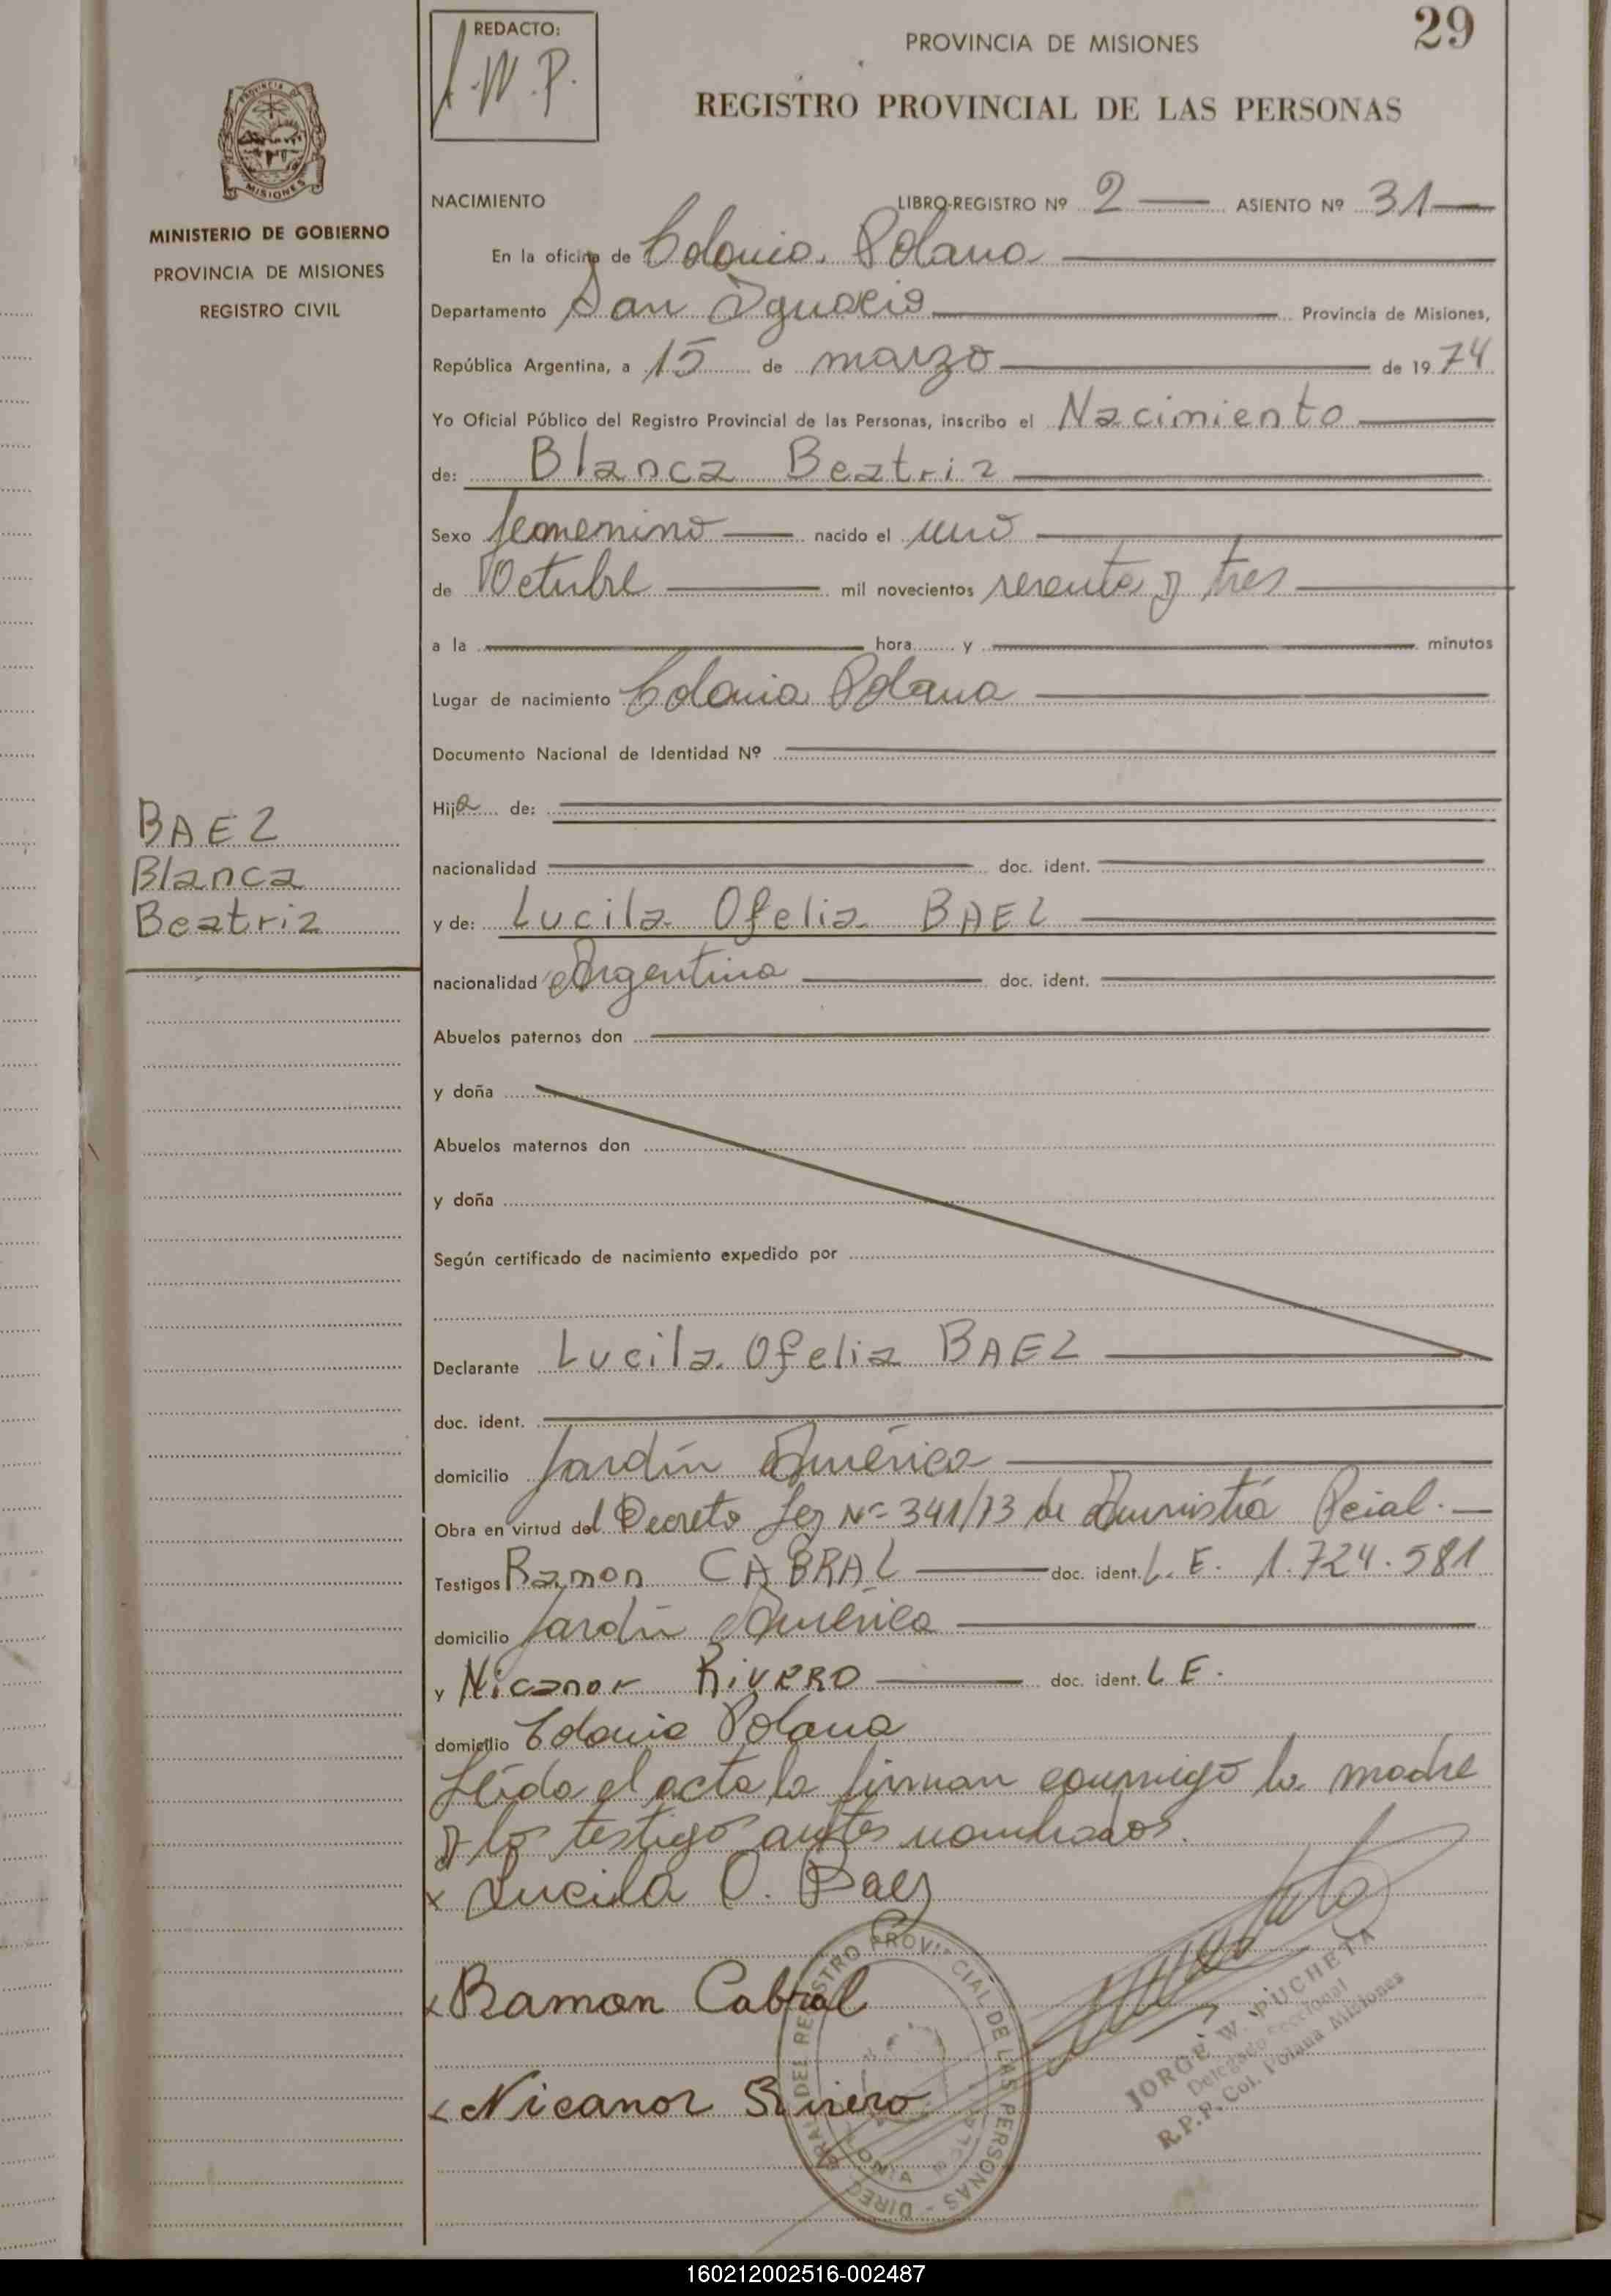 REDACTO:
J.W.P.
PROVINCIA DE MISIONES
29
REGISTRO PROVINCIAL DE LAS PERSONAS
PROVINCIA DE
MISIONES
MINISTERIO DE GOBIERNO
PROVINCIA DE MISIONES
REGISTRO CIVIL
NACIMIENTO LIBRO-REGISTRO Nº 2 ASIENTO Nº 31
En la oficina de Colonia Polana
Departamento San Ignacio Provincia de Misiones,
República Argentina, a 15 de marzo de 1974
Yo Oficial Público del Registro Provincial de las Personas, inscribo el Nacimiento
de: Blanca Beatriz
Sexo femenino nacido el uno
de Octubre mil novecientos sesenta y tres
a la hora y minutos
Lugar de nacimiento Colonia Polana
Documento Nacional de Identidad Nº
Hija de:
BAEZ
Blanca
Beatriz
nacionalidad doc. ident.
y de: Lucila Ofelia BAEZ
nacionalidad Argentina doc. ident.
Abuelos paternos don
y doña
Abuelos maternos don
y doña
Según certificado de nacimiento expedido por
Declarante Lucila Ofelia BAEZ
doc. ident.
domicilio Jardín América
Obra en virtud del Decreto Ley Nº 341/73 de Amnistía Pcial.
Testigos Ramon CABRAL doc. ident. L.E. 1.724.581
domicilio Jardín América
y Nicanor RIVERO doc. ident. L.E.
domicilio Colonia Polana
Leída el acta la firman conmigo la madre
y los testigos antes nombrados.
x Lucila O. Baez
x Ramon Cabral
x Nicanor Rivero
REGISTRO PROVINCIAL DE LAS PERSONAS
JORGE W. PUCHETA
Delegado Seccional
R.P.P. Col. Polana Misiones
160212002516-002487